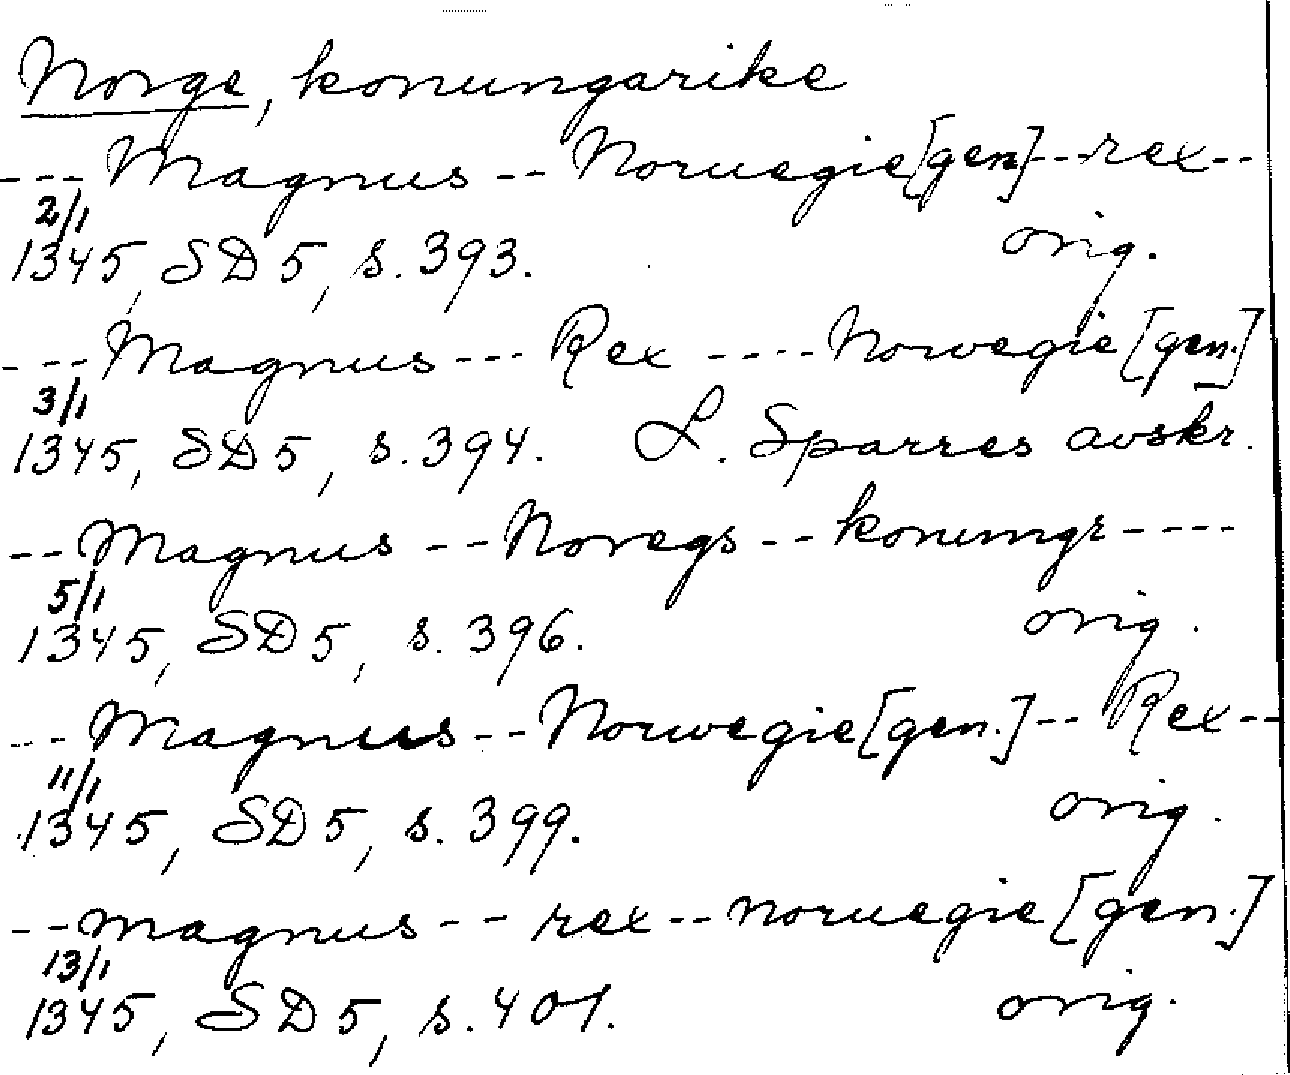 Norge, konungarike
--- Magnus -- Noruegie [gen] --- rex --
2/1
1345, SD 5, s. 393. orig.
--- Magnus --- Rex ---- Norwegie [gen.]
3/1
1345, SD 5, s. 394. L. Sparres avskr.
-- Magnus -- Noregs -- konungr ----
5/1
1345, SD 5, s. 396. orig.
--- Magnus -- Norwegie [gen.] -- Rex --
11/1
1345, SD 5, s. 399. orig.
-- magnus -- rex -- noruegie [gen.]
13/1
1345, SD 5, s. 401. orig.